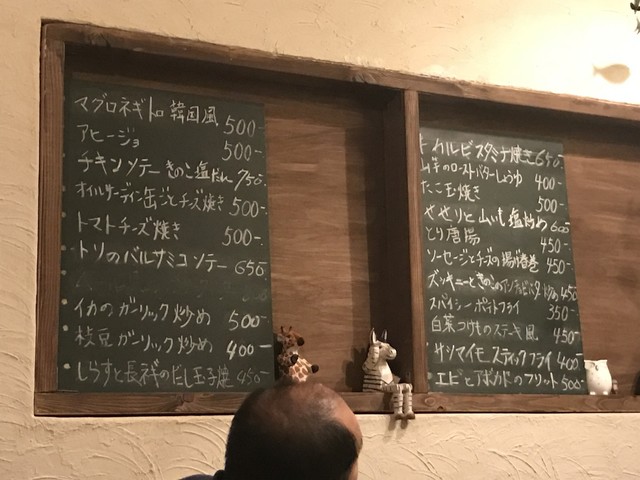 マグロネギトロ 韓国風 500-
アヒージョ 500-
チキンソテー きのこ塩だれ 750-
オイルサーディン缶ごとチーズ焼き 500-
トマトチーズ焼き 500-
トリのバルサミコソテー 650-
イカのガーリック炒め 500-
枝豆ガーリック炒め 400-
しらすと長ネギのだし玉子焼 450-
カルビスタミナ焼き 650-
山芋のローストバターしょうゆ 400-
たこ玉焼き 500-
やせりと山いも塩炒め 600
とり唐揚 450-
ソーセージとチーズの揚げ春巻 450-
ズッキーニときのこのアンチョビバター炒め 450
スパイシーポテトフライ 350-
白菜つけものステーキ風 450-
サツマイモスティックフライ 400-
エビとアボカドのフリット 500-